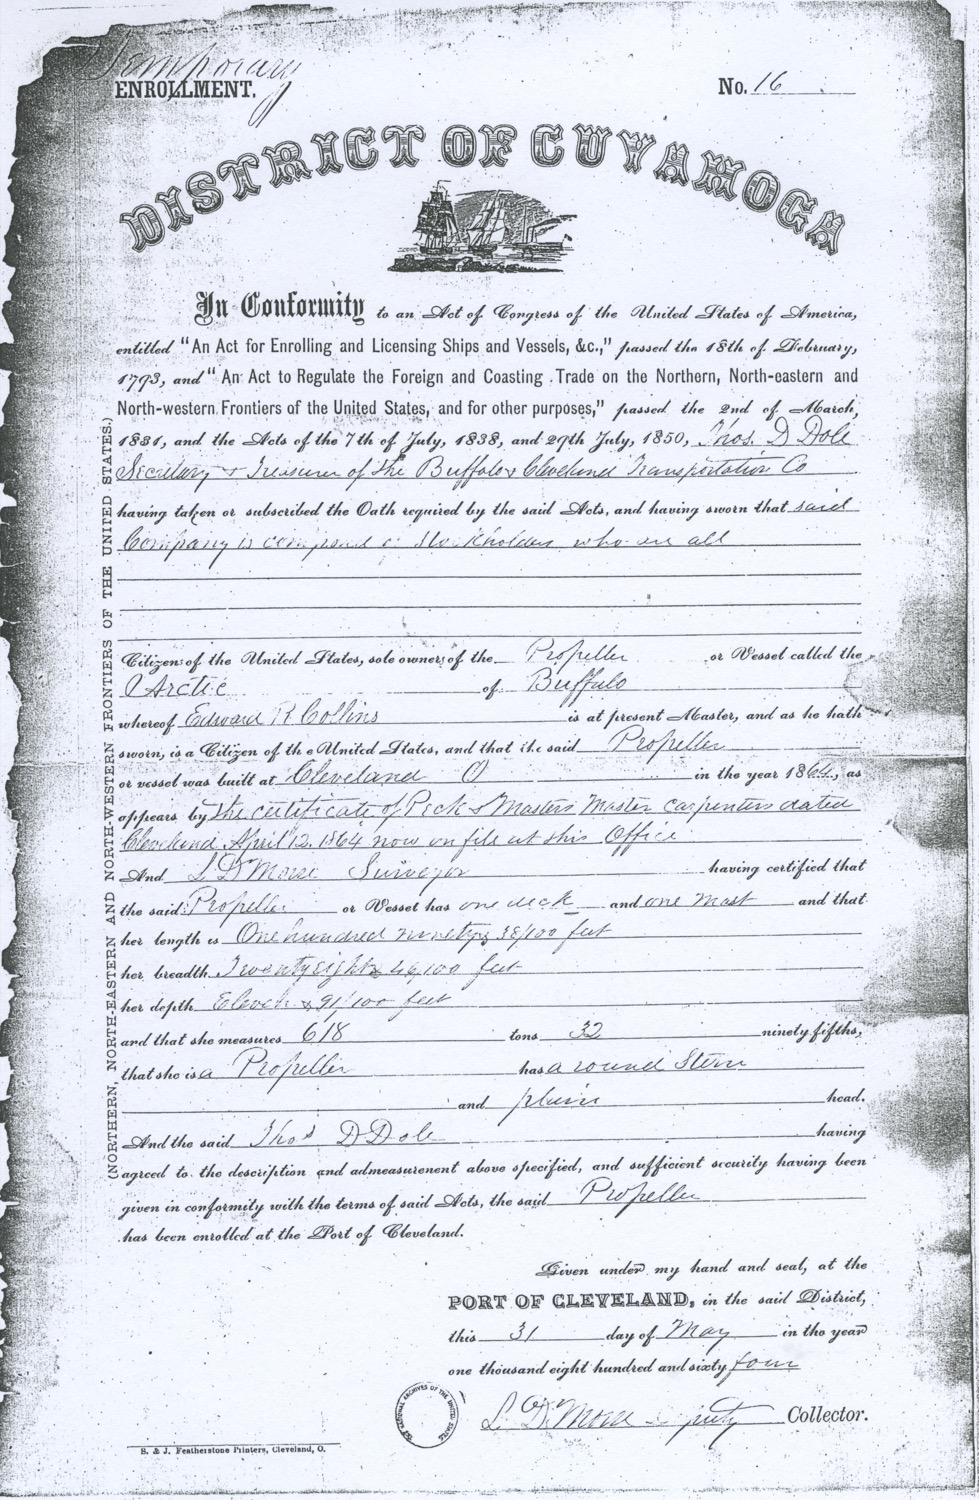 Temporary
ENROLLMENT. No. 16
DISTRICT OF CUYAHOGA
In Conformity to an Act of Congress of the United States of America,
entitled "An Act for Enrolling and Licensing Ships and Vessels, &c.," passed the 18th of February,
1793, and "An Act to Regulate the Foreign and Coasting Trade on the Northern, North-eastern and
North-western Frontiers of the United States, and for other purposes," passed the 2nd of March,
1831, and the Acts of the 7th of July, 1838, and 29th July, 1850, Thos. D Dole
Secretary & Treasurer of the Buffalo & Cleveland Transportation Co
having taken or subscribed the Oath required by the said Acts, and having sworn that said
Company is composed of Stockholders who are all
Citizens of the United States, sole owners of the Propeller or Vessel called the
Arctic of Buffalo
whereof Edward R Collins is at present Master, and as he hath
sworn, is a Citizen of the United States, and that the said Propeller
or vessel was built at Cleveland O in the year 1864, as
appears by the certificate of Peck & Masters Master carpenters dated
Cleveland April 12. 1864 now on file at this Office
And L D Morse Surveyor having certified that
the said Propeller or Vessel has one deck and one mast and that
her length is One hundred ninety & 38/100 feet
her breadth Twenty eight & 46/100 feet
her depth Eleven & 91/100 feet
and that she measures 618 tons 32 ninety fifths,
that she is a Propeller has a round Stern
and plain head.
And the said Thos D Dole having
agreed to the description and admeasurement above specified, and sufficient security having been
given in conformity with the terms of said Acts, the said Propeller
has been enrolled at the Port of Cleveland.
Given under my hand and seal, at the
PORT OF CLEVELAND, in the said District,
this 31 day of May in the year
one thousand eight hundred and sixty four
L. D. Morse Deputy Collector.
THE NATIONAL ARCHIVES OF THE UNITED STATES
S. & J. Featherstone Printers, Cleveland, O.
(NORTHERN, NORTH-EASTERN AND NORTH-WESTERN FRONTIERS OF THE UNITED STATES.)